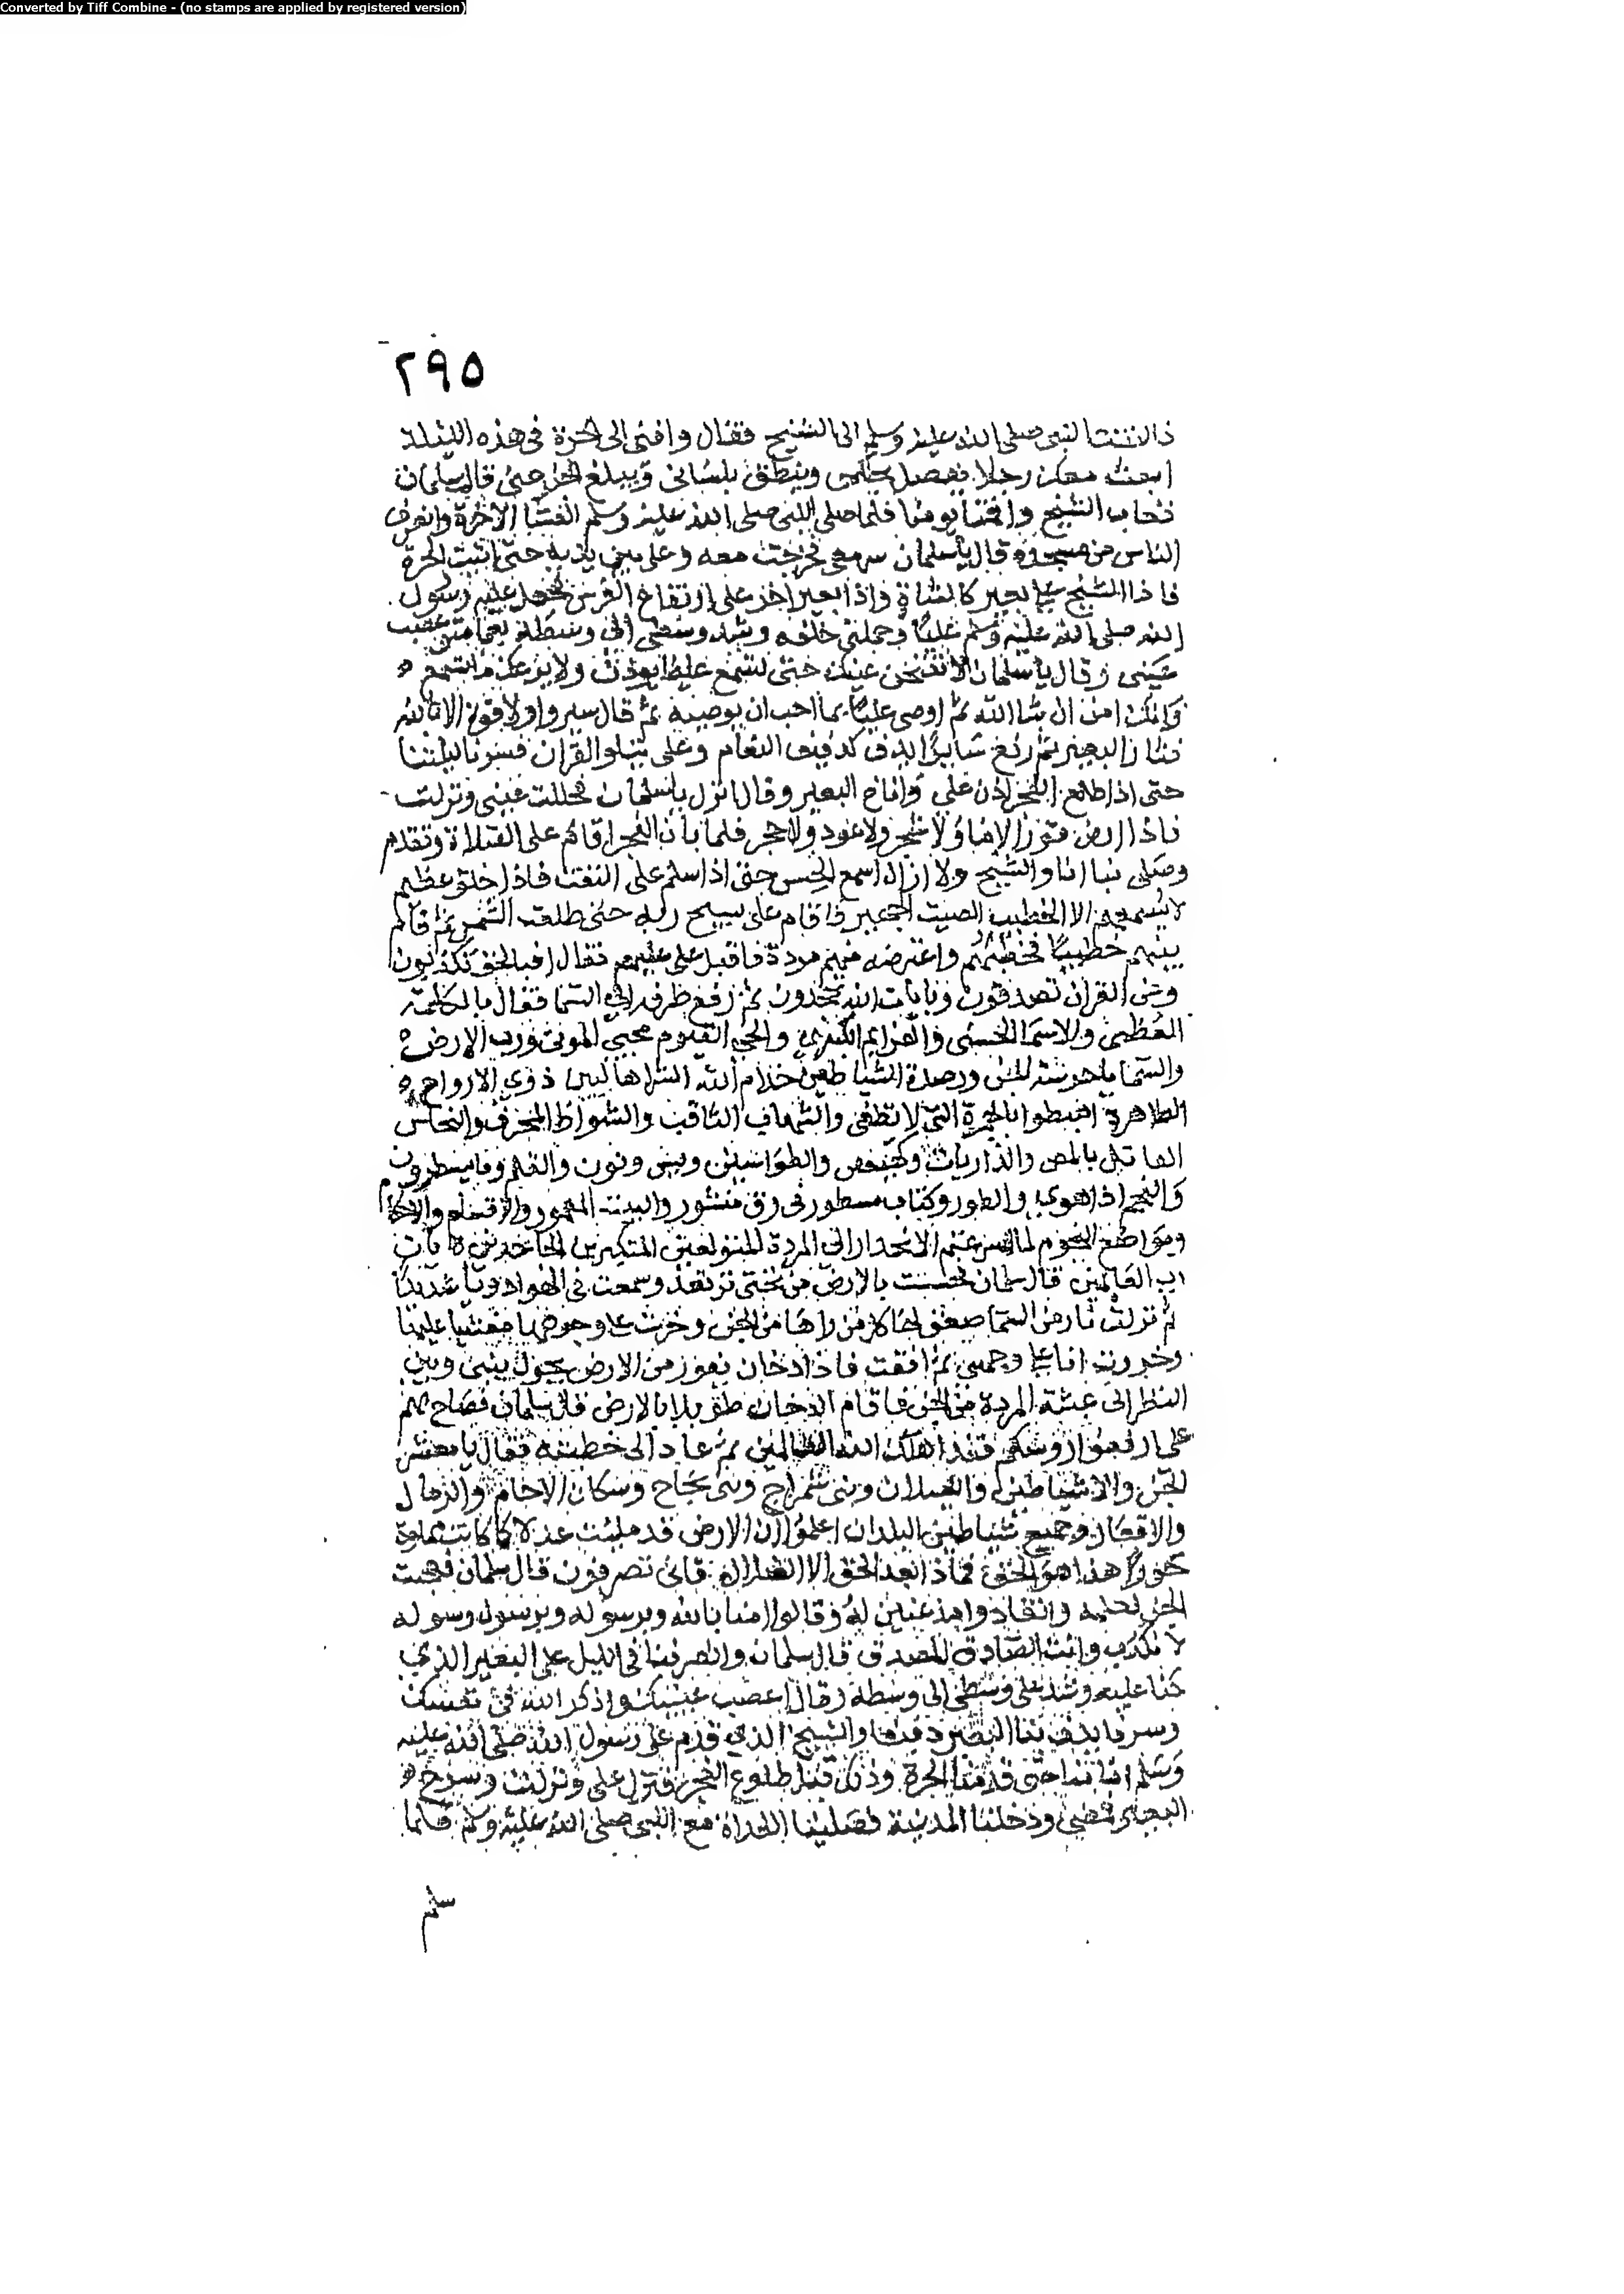 Converted by Tiff Combine - (no stamps are applied by registered version)
٢٩٥
فالتفت النبى صلى الله عليه وسلم الى الشيخ فقال وافنى الى الحرة فى هذه الليلة
ابعث معك رجلا يفصل حكمى وينطق بلسانى ويبلغ الجن عنى قال سلمان
فغاب الشيخ واقمنا يومنا فلما صلى النبى صلى الله عليه وسلم العشا الاخرة وانصرف
الناس من مسجده قال يا سلمان سر معى فخرجت معه وعلى بين يديه حتى اتيت الحرة
فاذا الشيخ على بعير كالشاة واذا بعير اخر على ارتفاع الفرس فحمل عليه رسول
الله صلى الله عليه وسلم عليا وحملنى خلفه وشد وسطى الى وسطه بعمامتى عصب
عينى وقال يا سلمان لا تفتحن عينك حتى تسمع عليا يوذن ولا يرعك ما تسمع
وانك امن ان شا الله ثم اوصى عليا بما احب ان يوصيه ثم قال سيروا ولا قوة الا بالله
فثار البعير ثم رفع سايرا يدف كدفيف النعام وعلى يتلو القران فسرنا ليلتنا
حتى اذا طلع الفجر اذن على واناخ البعير وقال انزل يا سلمان فحللت عينى ونزلت
فاذا ارض قورا لا ما ولا شجر ولا عود ولا حجر فلما بان الفجر اقام على الصلاة وتقدم
وصلى بنا انا والشيخ ولا ازال اسمع الحس حتى اذا سلم على التفت فاذا خلق عظيم
لا يسمعهم الا الخطيب الصيت الجهير فاقام على يسبح ربه حتى طلعت الشمس ثم قام
فيهم خطيبا فخطبهم واعترضه منهم مردة فاقبل على عليهم فقال افبالحق تكذبون
وعن القران تصدفون وبايات الله تجحدون ثم رفع طرفه الى السما فقال بالكلمة
العظمى والاسما الحسنى والعزايم الكبرى والحى القيوم محيى الموتى ورب الارض
والسما يا حرسة الجن ورصدة الشياطين خدام الله الشراهاليين ذوى الارواح
الطاهرة اهبطوا بالجمرة التى لا تطفى والشهاب الثاقب والشواظ المحرق والنحاس
القاتل بالمص والذاريات وكهيعص والطواسين ويس ونون والقلم وما يسطرون
والنجم اذا هوى والطور وكتاب مسطور فى رق منشور والبيت المعمور والاقسام والاحكام
ومواقع النجوم لما اسرعتم الانحدار الى المردة المتولعين المتكبرين الجاحدين لايات
رب العالمين قال سلمان فحسست بالارض من تحتى ترتعد وسمعت فى الهواء دويا شديدا
ثم نزلت نار من السما صعق لها كل من راها من الجن وخرت على وجوهها مغشيا عليها
وخررت انا على وجهى ثم افقت فاذا دخان يفور من الارض يحول بينى وبين
النظر الى عبثة المردة من الجن فاقام الدخان طويلا بالارض قال سلمان فصاح بهم
على ارفعوا روسكم فقد اهلك الله الظالمين ثم عاد الى خطبته فقال يا معشر
الجن والشياطين والغيلان وبنى شمراخ وبنى نجاح وسكان الاجام والرمال
والاقفار وجميع شياطين البلدان اعلموا ان الارض قد ملئت عدلا كما كانت مملوة
جورا هذا هو الحق فماذا بعد الحق الا الضلال فانى تصرفون قال سلمان فعجبت
الجن لعلمه وانقادوا مذعنين له وقالوا امنا بالله وبرسوله وبرسول رسوله
لا نكذب وانت الصادق المصدق قال سلمان وانصرفنا فى الليل على البعير الذى
كنا عليه وشد على وسطى الى وسطه وقال اعصب عينيك واذكر الله فى نفسك
وسرنا يدف بنا البعير دفيفا والشيخ الذى قدم على رسول الله صلى الله عليه
وسلم امامنا حتى قدمنا الحرة وذلك قبل طلوع الفجر فنزل على ونزلت وسرح
البعير فمضى ودخلنا المدينة فصلينا الغداة مع النبى صلى الله عليه وسلم فلما
سلم